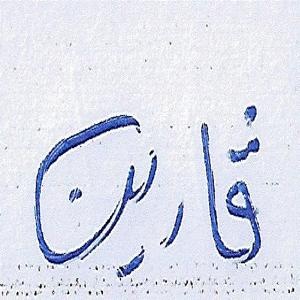 قارین